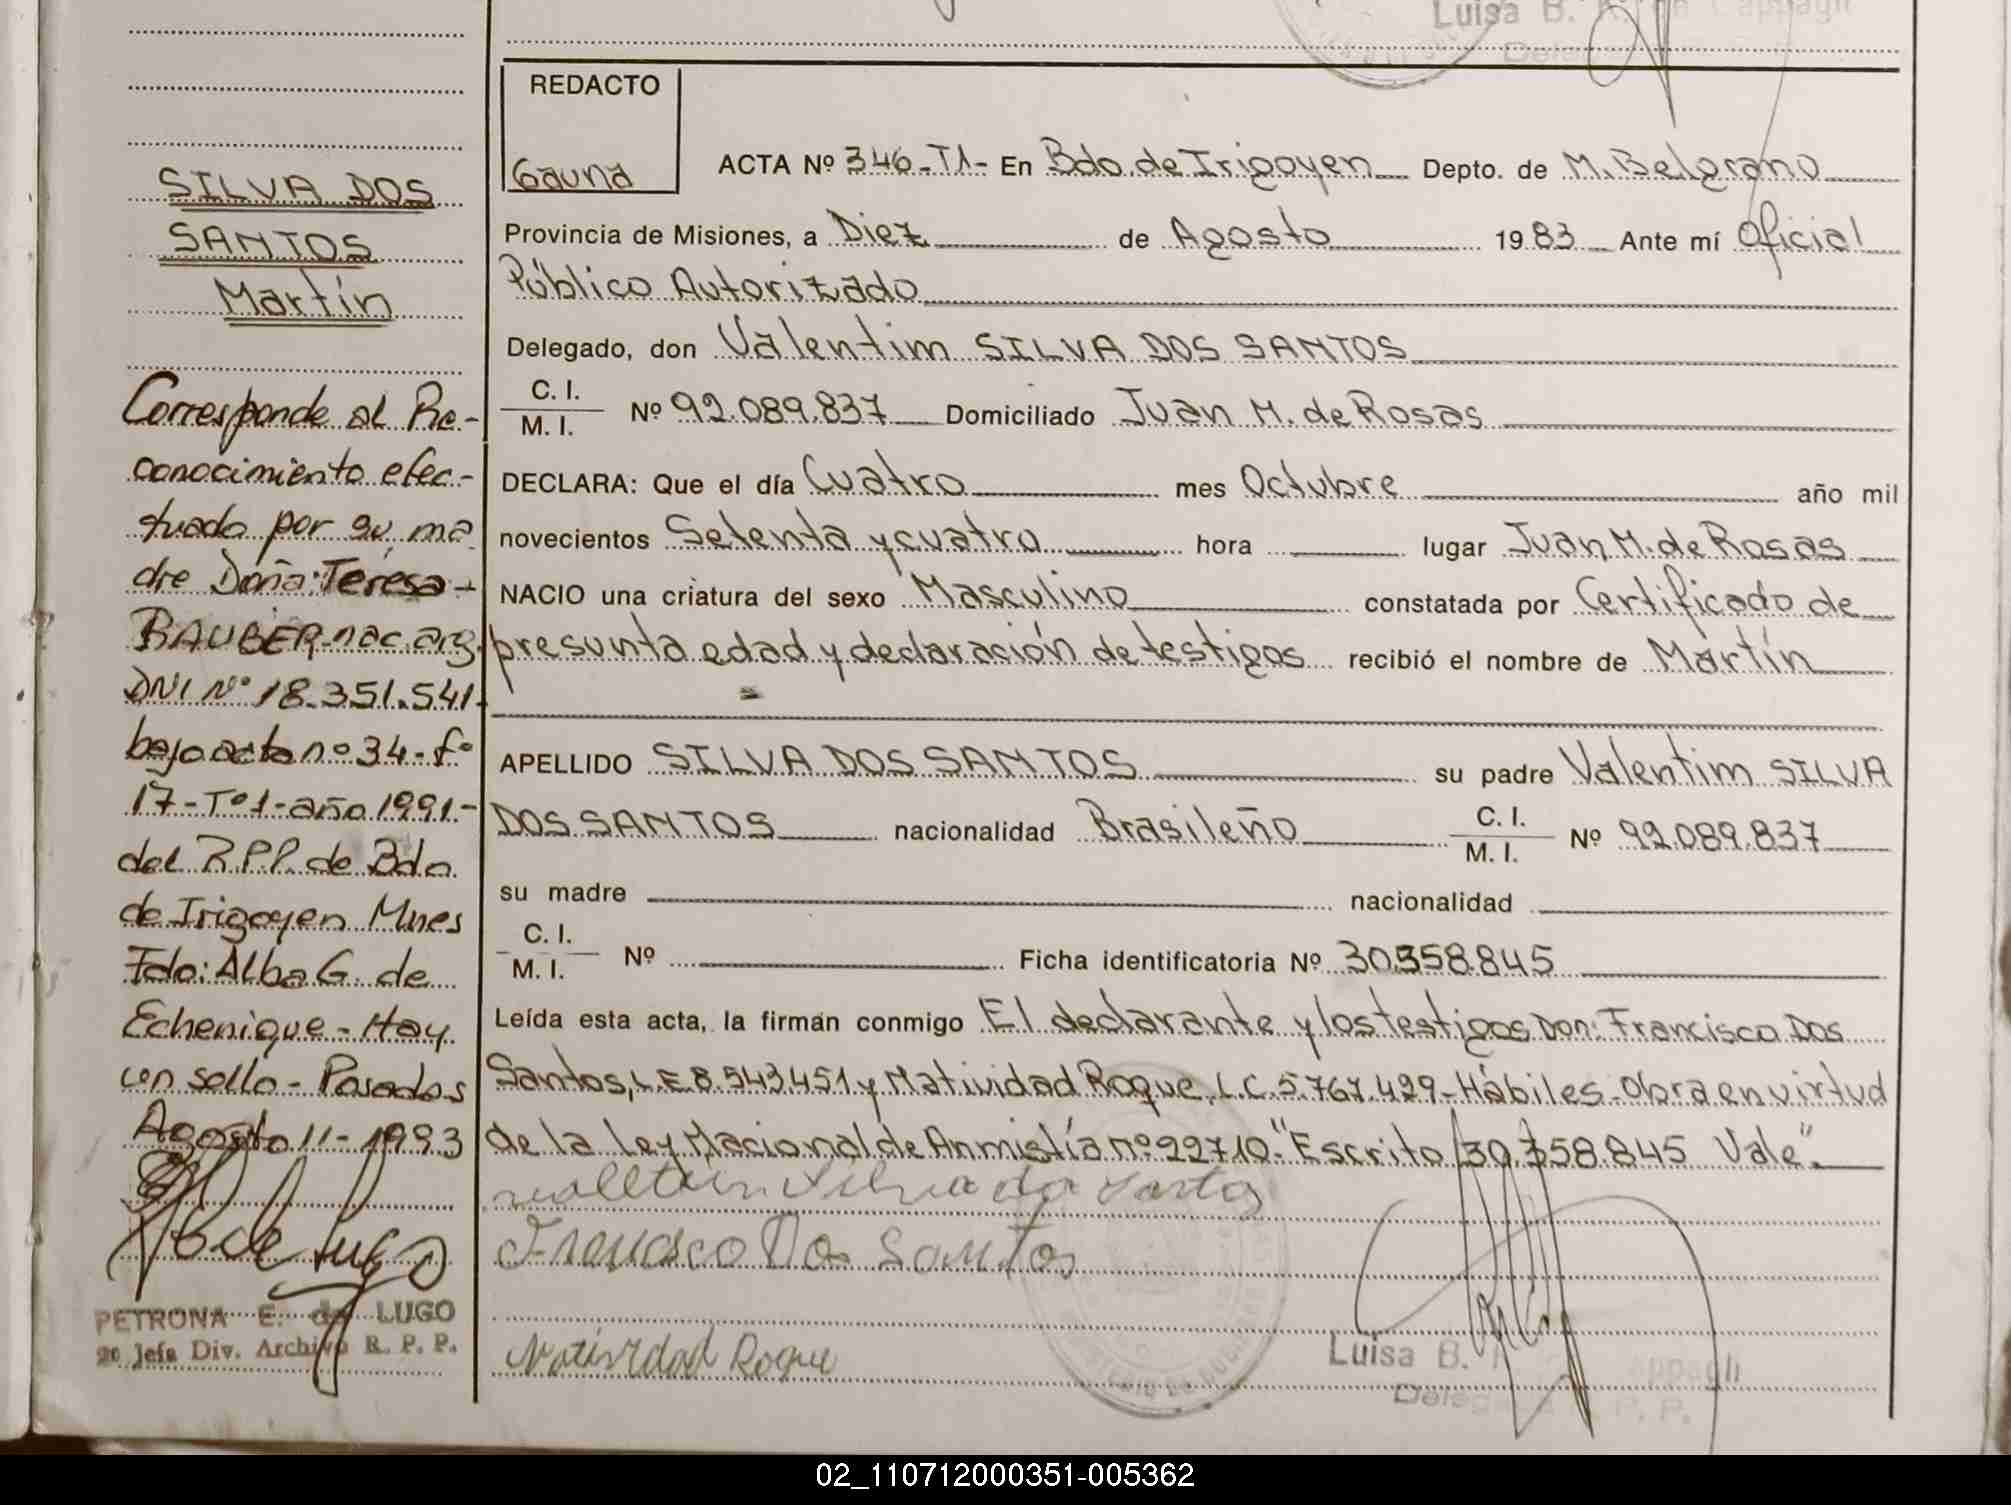 Luisa B.
Dele
SILVA DOS
SANTOS
Martín
Corresponde al Re-
conocimiento efec-
tuado por su ma
dre Doña: Teresa-
BAUBER-nac.arg.
DNI Nº 18.351.541-
bajo acta nº 34-fº
17-Tº1-año 1991-
del R.P.P. de Bdo.
de Irigoyen Mnes
Fdo: Alba G. de
Echenique-Hay
un sello-Posadas
Agosto 11-1993
PETRONA E. de LUGO
Jefa Div. Archivo R. P. P.
REDACTO
Gauna
ACTA Nº 346-T1- En Bdo. de Irigoyen Depto. de M. Belgrano
Provincia de Misiones, a Diez de Agosto 1983 Ante mí Oficial
Público Autorizado
Delegado, don Valentim SILVA DOS SANTOS
C. I.
M. I. Nº 92.089.837 Domiciliado Juan M. de Rosas
DECLARA: Que el día Cuatro mes Octubre año mil
novecientos Setenta y cuatro hora lugar Juan M. de Rosas
NACIO una criatura del sexo Masculino constatada por Certificado de
presunta edad y declaración de testigos recibió el nombre de Martín
APELLIDO SILVA DOS SANTOS su padre Valentim SILVA
DOS SANTOS nacionalidad Brasileño C. I. M. I. Nº 92.089.837
su madre nacionalidad
C. I.
M. I. Nº Ficha identificatoria Nº 30.358.845
Leída esta acta, la firman conmigo El declarante y los testigos Don: Francisco Dos
Santos, L.E 8.543.451 y Natividad Roque, L.C. 5.767.429-Hábiles-Obra en virtud
de la ley Nacional de Anmistía nº 22710-"Escrito/30.358.845 Vale".
Francisco Dos Santos
Natividad Roque
Luisa B.
02_110712000351-005362